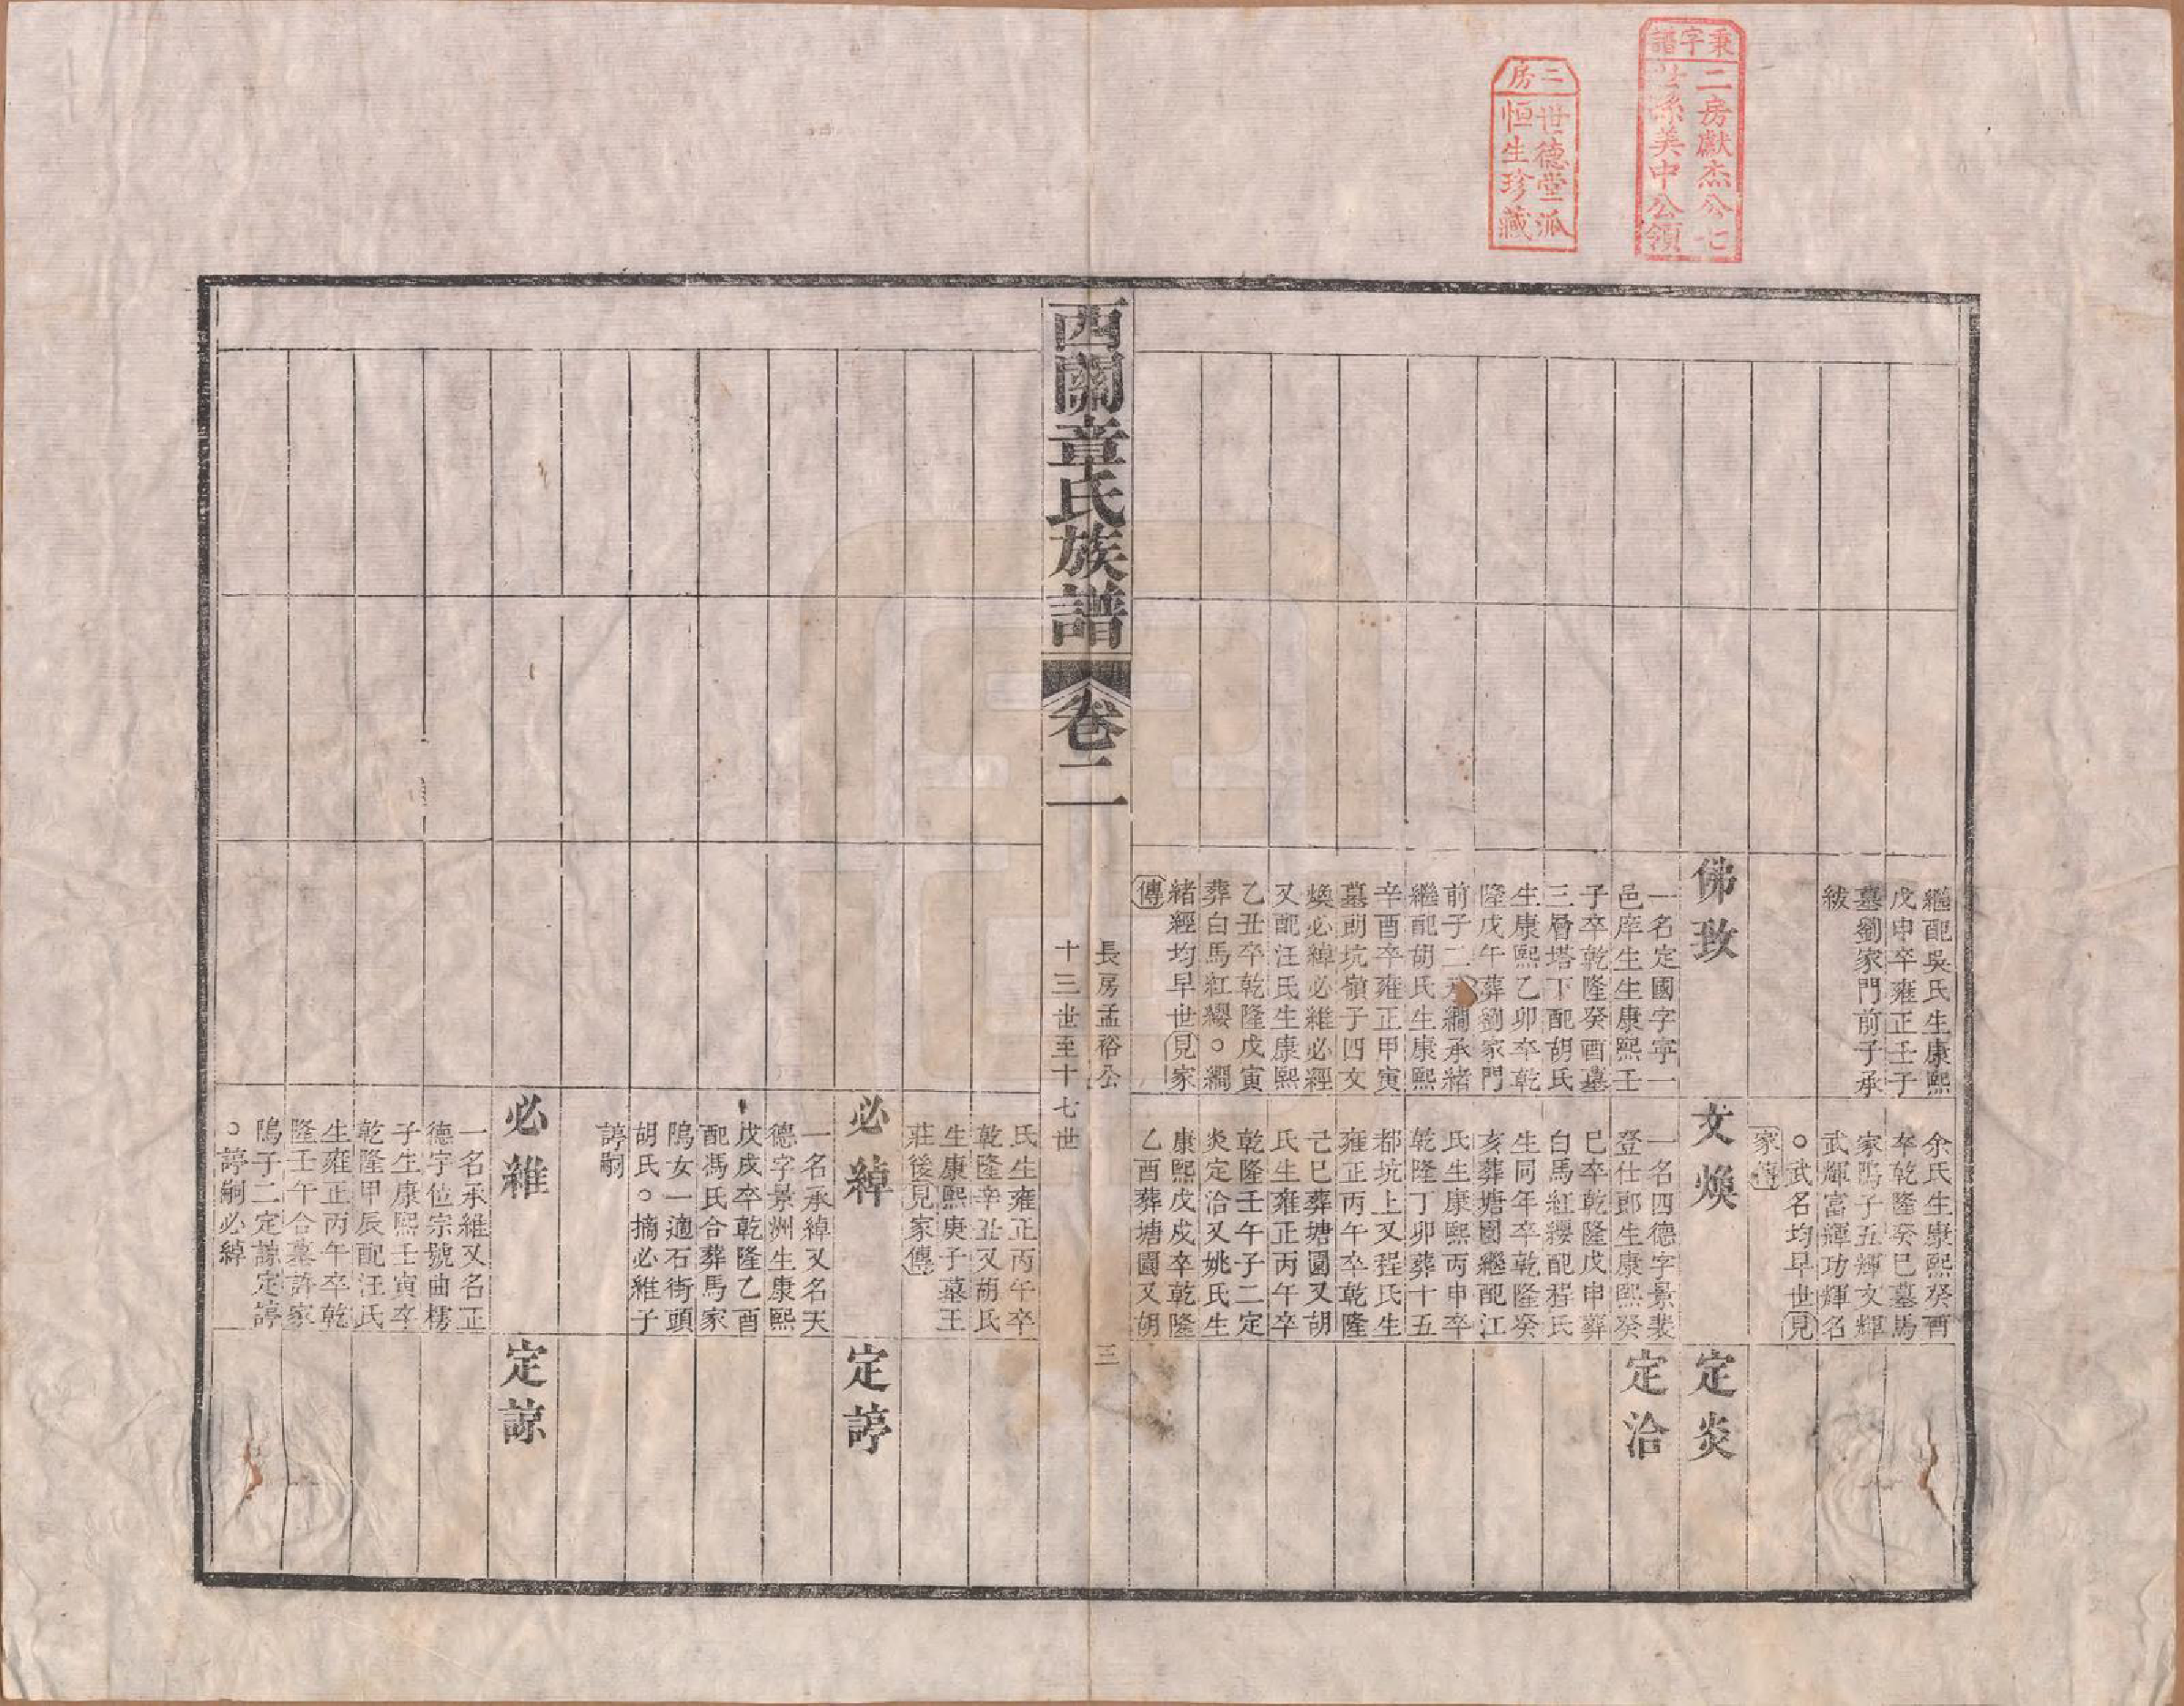 秉字譜
二房獻杰公七
世孫美中公領
二房
世德堂派
恒生珍藏
繼配吳氏生康熙
戊申卒雍正壬子
墓劉家門前子承
紱
佛玫
一名定國字寧一
邑庠生生康熙壬
子卒乾隆癸酉墓
三層塔下配胡氏
生康熙乙卯卒乾
隆戊午葬劉家門
前子二承綱承緒
繼配胡氏生康熙
辛酉卒雍正甲寅
墓前坑嶺子四文
煥必綽必維必經
又配汪氏生康熙
乙丑卒乾隆戊寅
葬白馬紅纓○綱
緒經均早世見家
傳
余氏生康熙癸酉
卒乾隆癸巳墓馬
家隖子五輝文輝
武輝富輝功輝名
○武名均早世見
家傳
文煥
一名四德字景裴
登仕郎生康熙癸
巳卒乾隆戊申葬
白馬紅纓配程氏
生同年卒乾隆癸
亥葬塘園繼配江
氏生康熙丙申卒
乾隆丁卯葬十五
都坑上又程氏生
雍正丙午卒乾隆
己巳葬塘園又胡
氏生雍正丙午卒
乾隆壬午子二定
炎定洽又姚氏生
康熙戊戌卒乾隆
乙酉葬塘園又胡
定炎
定洽
西關章氏族譜
卷二
長房孟裕公
十三世至十七世
三
氏生雍正丙午卒
乾隆辛丑又胡氏
生康熙庚子墓王
莊後見家傳
必綽
一名承綽又名天
德字景洲生康熙
戊戌卒乾隆乙酉
配馮氏合葬馬家
隖女一適石街頭
胡氏○摘必維子
諄嗣
定諄
必維
一名承維又名正
德字位宗號曲樗
子生康熙壬寅卒
乾隆甲辰配汪氏
生雍正丙午卒乾
隆壬午合墓許家
隖子二定諒定諄
○諄嗣必綽
定諒